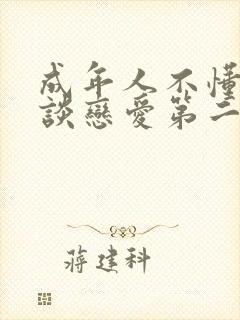 成年人不懂
談戀愛第二
蔣建科